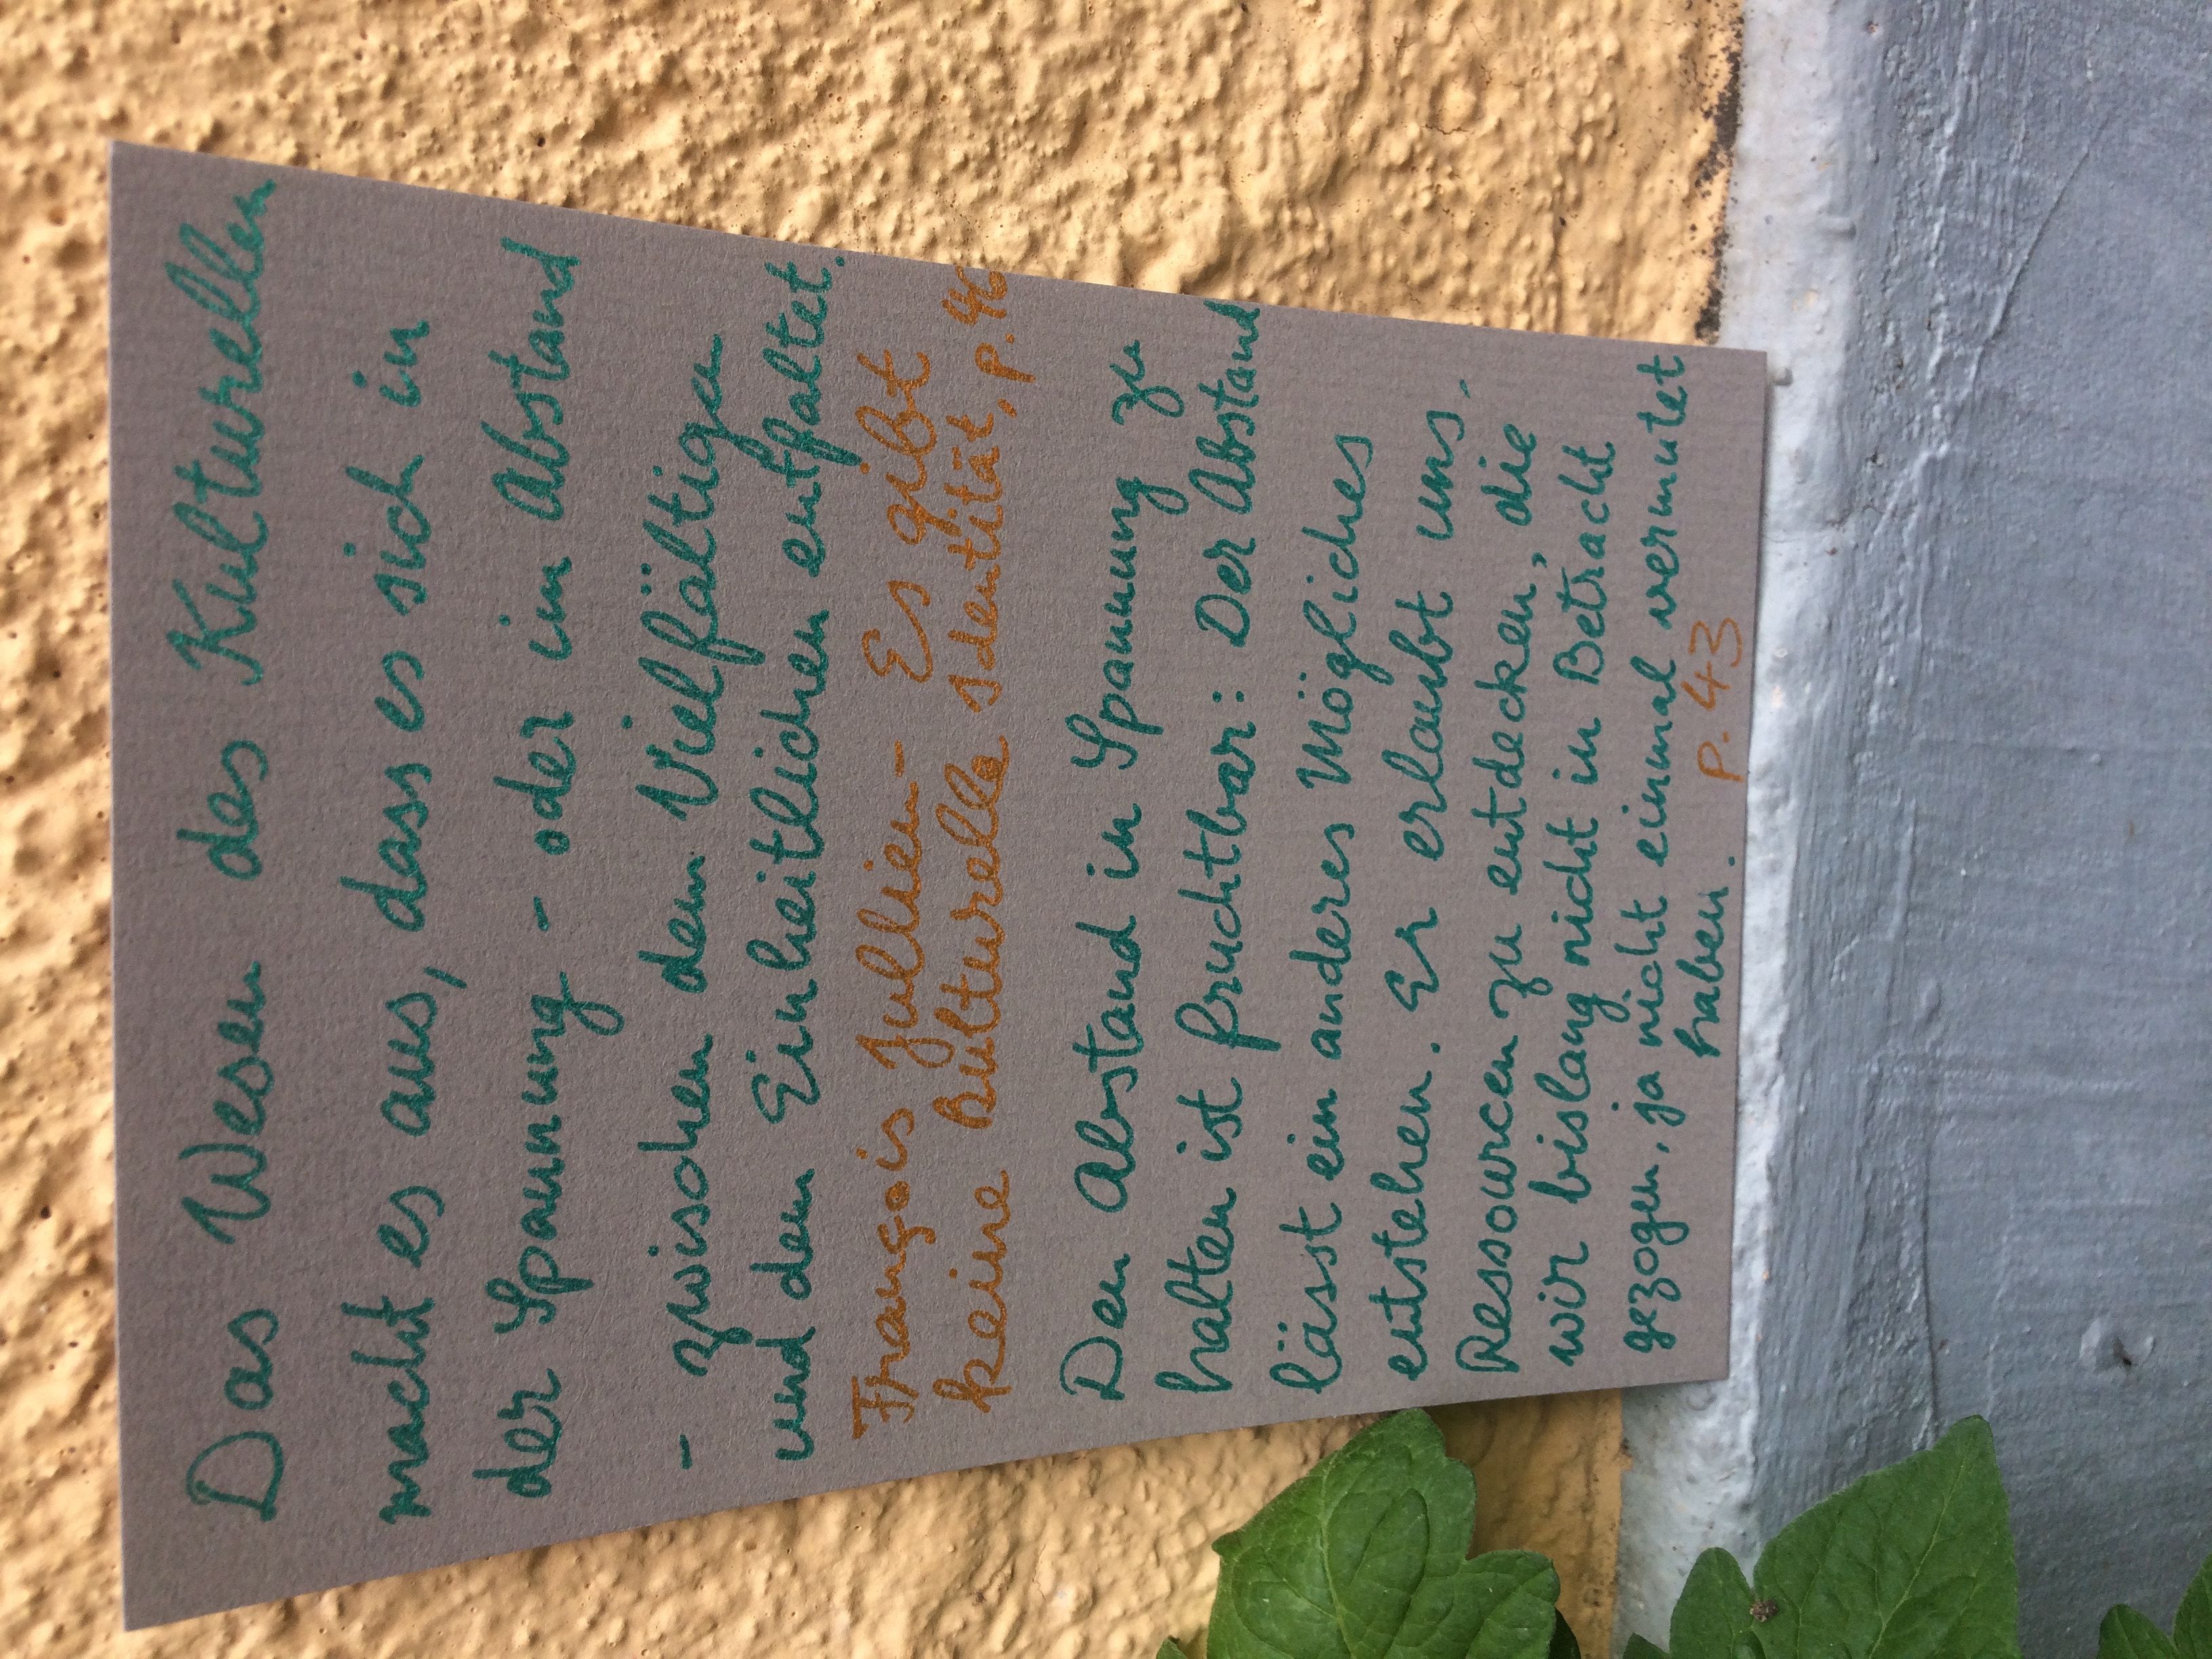 Das Wesen des Kulturellen
macht es aus, dass es sich in
der Spannung - oder im Abstand
- zwischen dem Vielfältigen
und dem Einheitlichen entfaltet.
François Jullien - Es gibt
keine kulturelle Identität, p. 46
Den Abstand in Spannung zu
halten ist fruchtbar: Der Abstand
lässt ein anderes Mögliches
entstehen. Er erlaubt uns,
Ressourcen zu entdecken, die
wir bislang nicht in Betracht
gezogen, ja nicht einmal vermutet
haben. p. 43